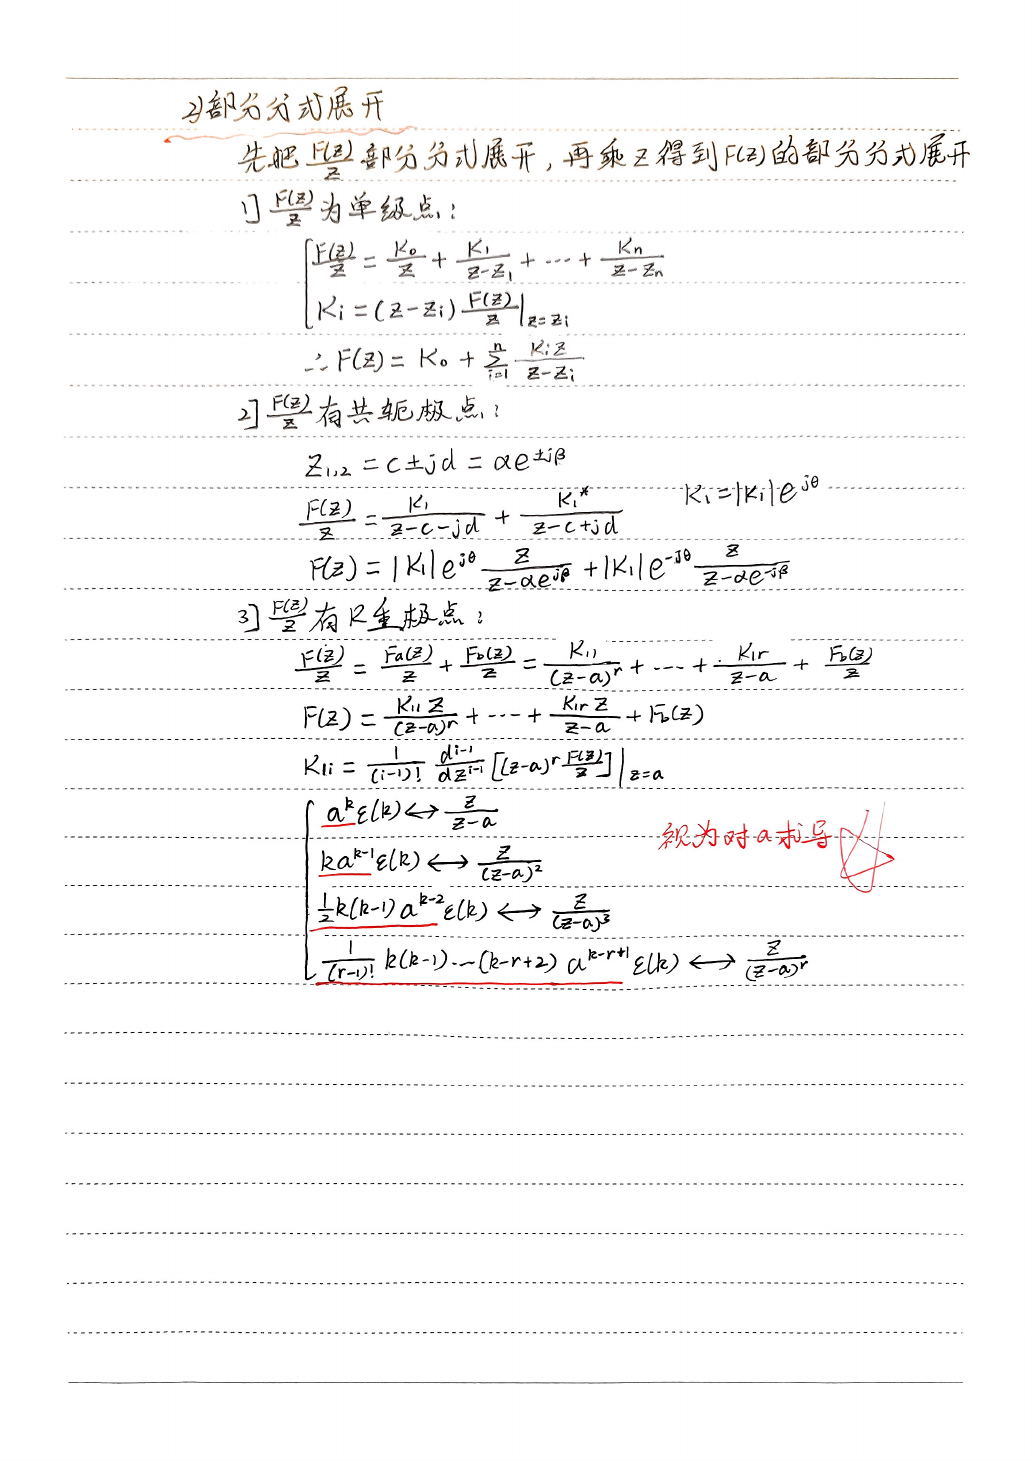 2)部分分式展开
先把 F(z)/z 部分分式展开, 再乘 z 得到 F(z) 的部分分式展开
1] F(z)/z 为单级点:
F(z)/z = K₀/z + K₁/(z-z₁) + ⋯ + Kn/(z-zn)
Ki = (z-zi) F(z)/z |z=zi
∴ F(z) = K₀ + Σ(i=1 → n) Kiz/(z-zi)
2] F(z)/z 有共轭极点:
z₁,₂ = c±jd = αe^(±jβ)
F(z)/z = K₁/(z-c-jd) + K₁*/(z-c+jd)   K₁=|K₁|e^(jθ)
F(z) = |K₁|e^(jθ) z/(z-αe^(jβ)) + |K₁|e^(-jθ) z/(z-αe^(-jβ))
3] F(z)/z 有R重极点:
F(z)/z = Fa(z)/z + Fb(z)/z = K₁₁/(z-a)^r + ⋯ + K₁r/(z-a) + Fb(z)/z
F(z) = K₁₁z/(z-a)^r + ⋯ + K₁r z/(z-a) + Fb(z)
K₁i = 1/(i-1)! d^(i-1)/dz^(i-1) [(z-a)^r F(z)/z] |z=a
a^k ε(k) ↔ z/(z-a)
视为对a求导
ka^(k-1) ε(k) ↔ z/(z-a)²
½k(k-1) a^(k-2) ε(k) ↔ z/(z-a)³
1/(r-1)! k(k-1)⋯(k-r+2) a^(k-r+1) ε(k) ↔ z/(z-a)^r